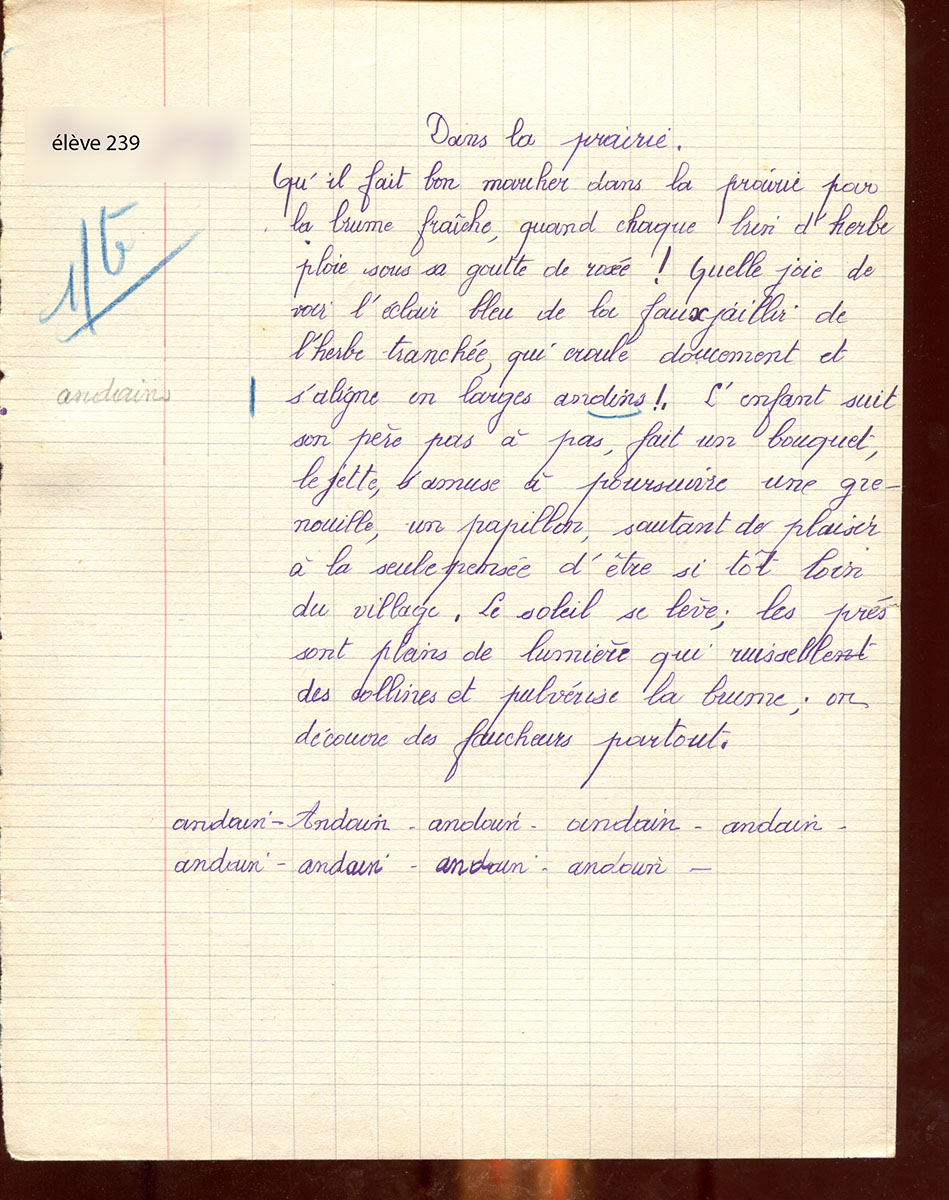 élève 239
Dans la prairie.
Qu'il fait bon marcher dans la prairie par
la brume fraîche, quand chaque brin d'herbe
ploie sous sa goutte de rosée ! Quelle joie de
voir l'éclair bleu de la faux jaillir de
l'herbe tranchée, qui croule doucement et
andains
s'aligne en larges andins !. L'enfant suit
son père pas à pas, fait un bouquet,
le jette, s'amuse à poursuivre une gre-
nouille, un papillon, sautant de plaisir
à la seule pensée d'être si tôt loin
du village. Le soleil se lève ; les prés
sont plains de lumière qui ruissellent
des collines et pulvérise la brume ; on
découvre des faucheurs partout.
andain - Andain - andain - andain - andain -
andain - andain - andain - andain -